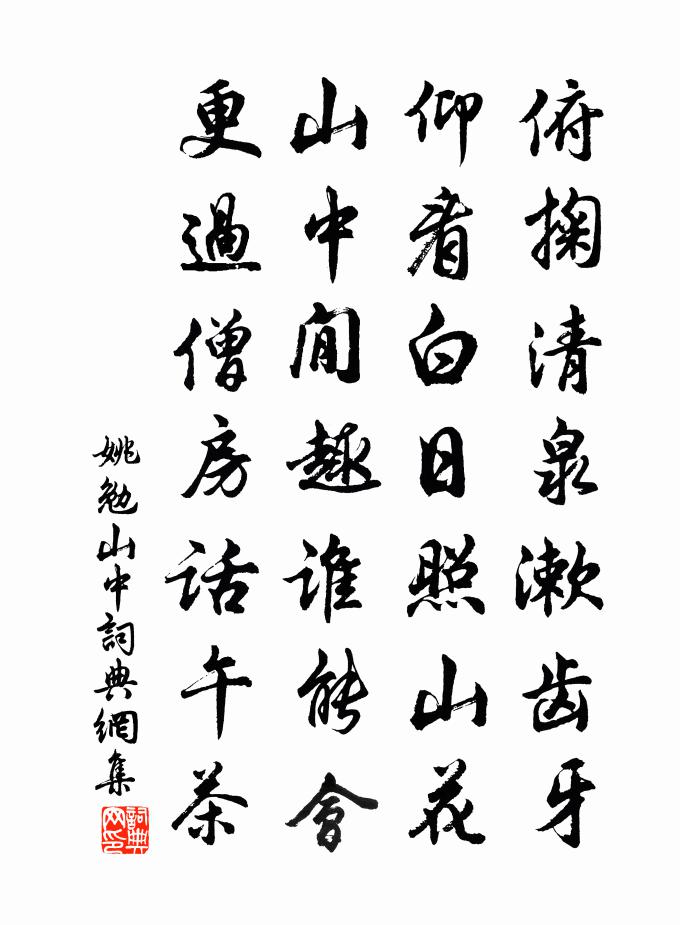 俯掬清泉漱齿牙
仰看白日照山花
山中閒趣谁能會
更過僧房话午茶
姚勉山中詞典網集
詞典网印